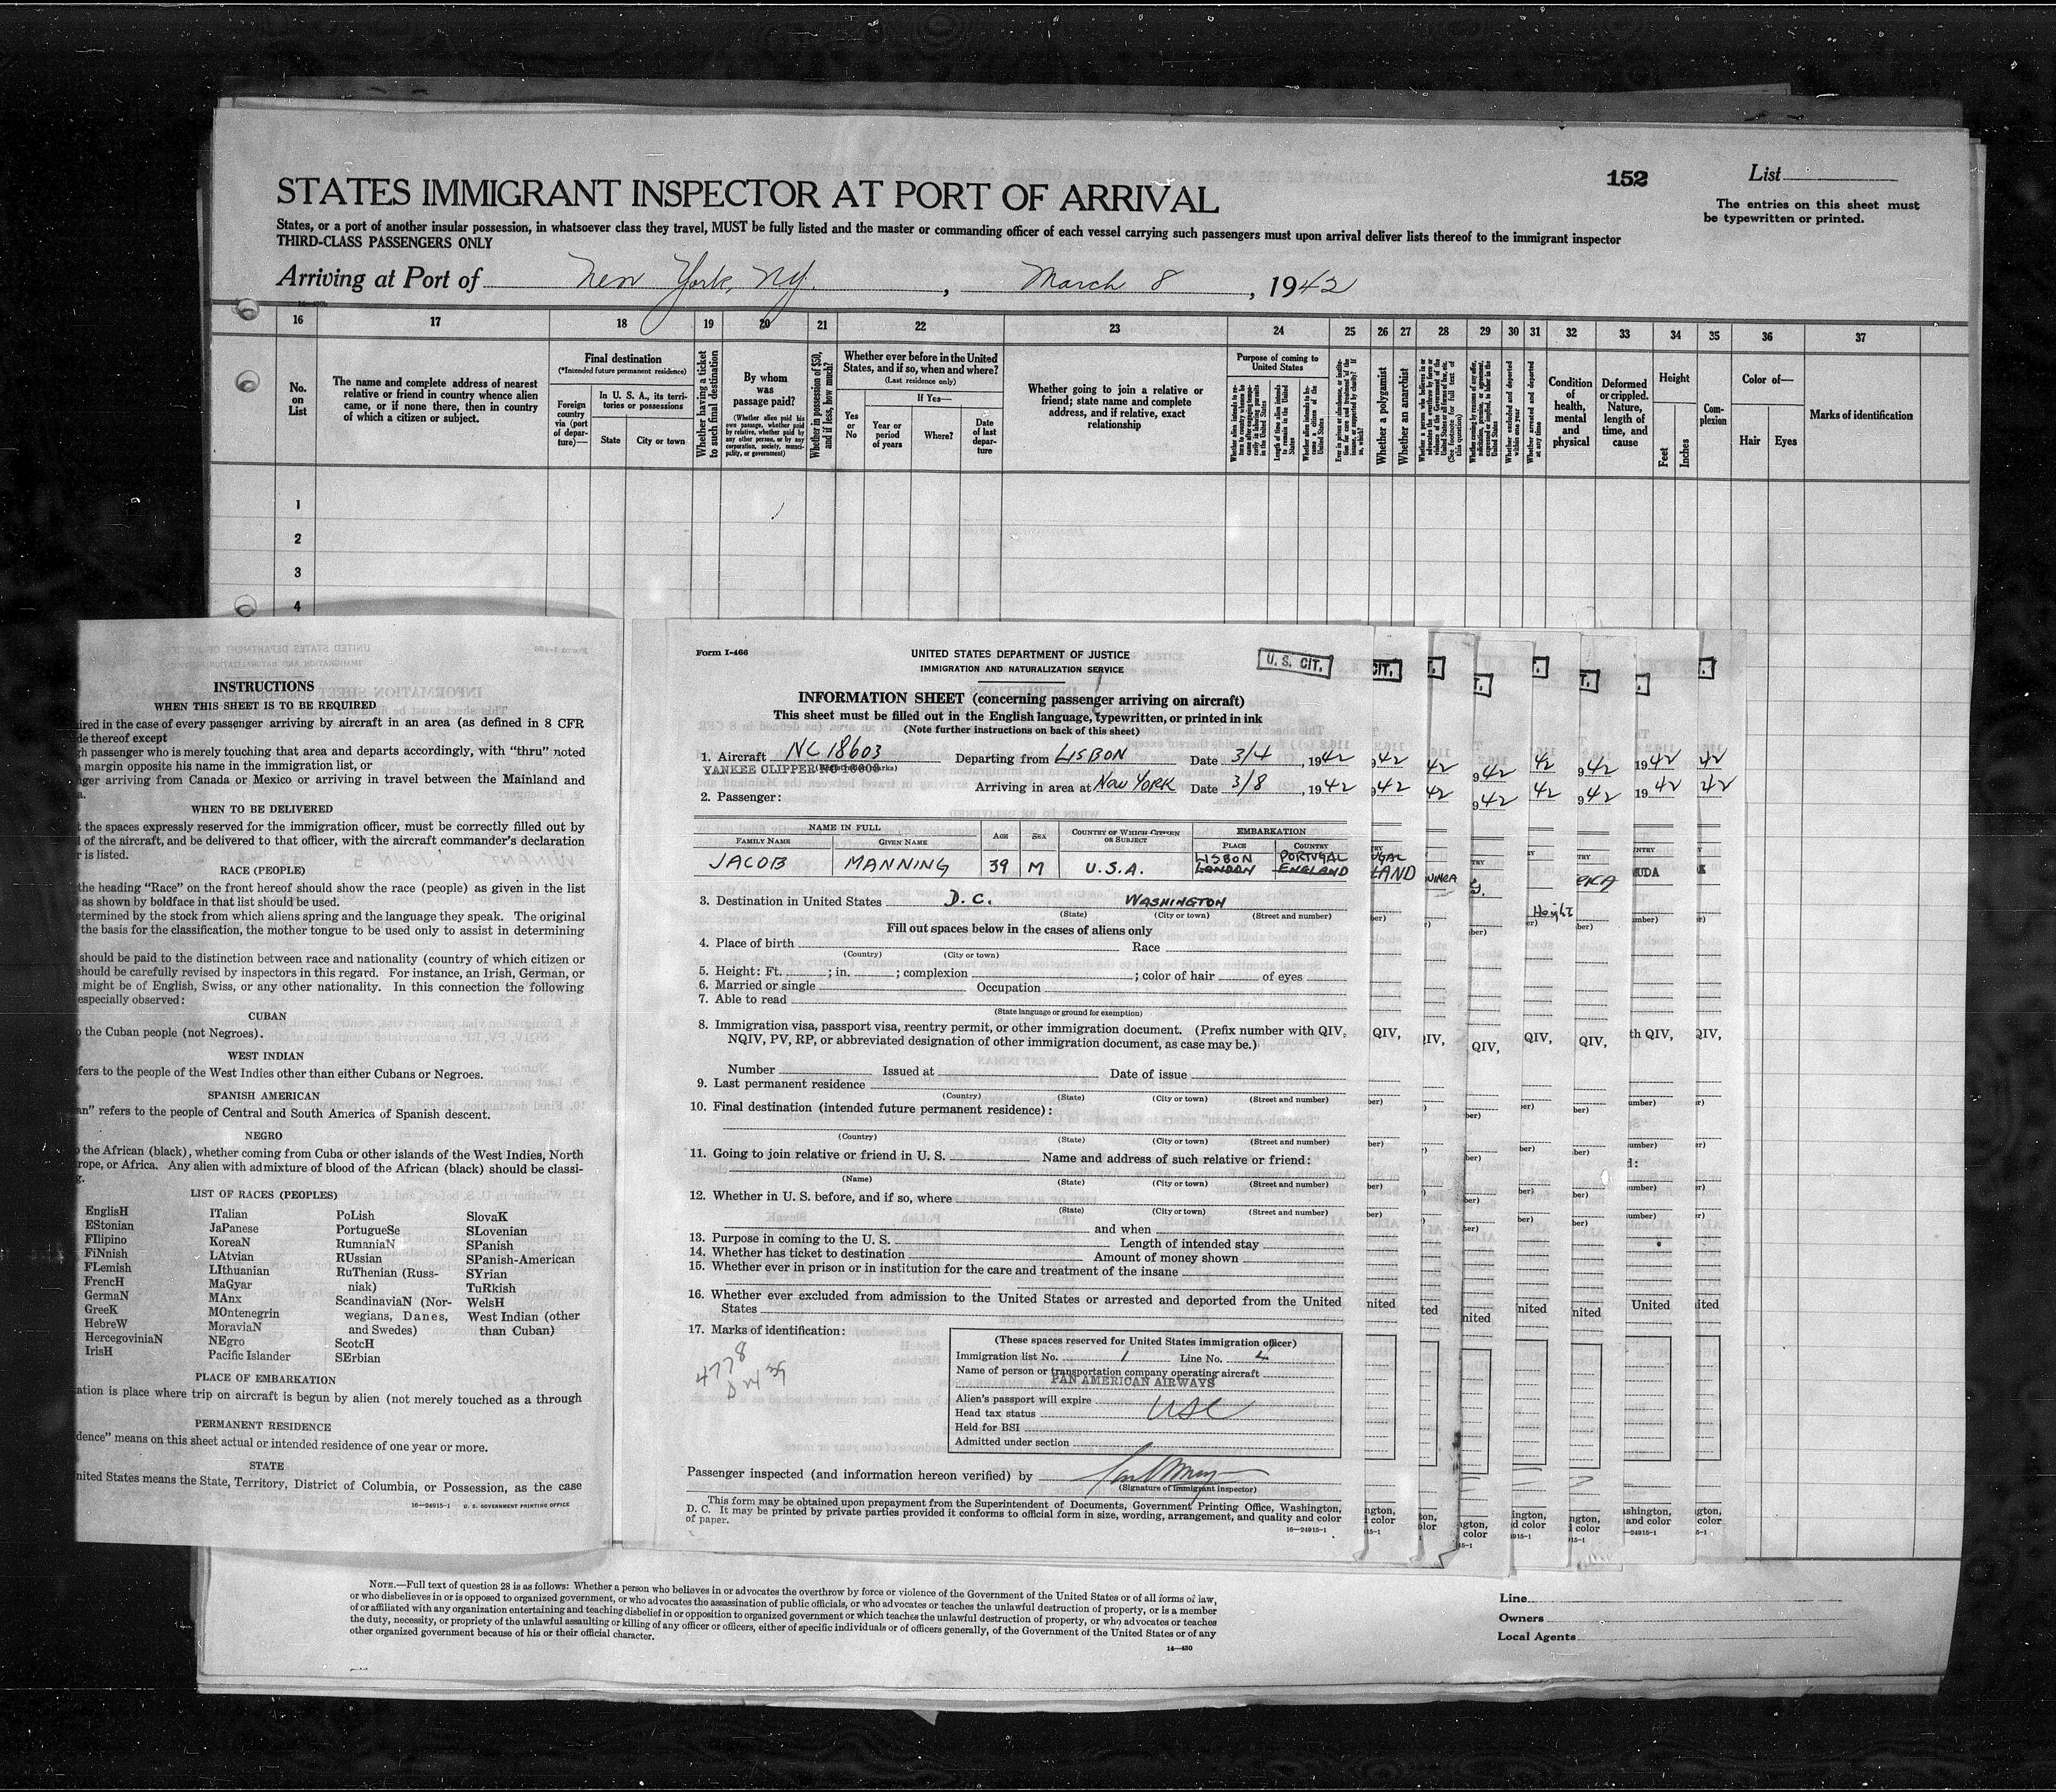 152
List
STATES IMMIGRANT INSPECTOR AT PORT OF ARRIVAL
The entries on this sheet must
be typewritten or printed.
States, or a port of another insular possession, in whatsoever class they travel, MUST be fully listed and the master or commanding officer of each vessel carrying such passengers must upon arrival deliver lists thereof to the immigrant inspector
THIRD-CLASS PASSENGERS ONLY
Arriving at Port of New York, NY. , March 8 , 1942
16 17 18 19 20 21 22 23 24 25 26 27 28 29 30 31 32 33 34 35 36 37
No. on List
The name and complete address of nearest relative or friend in country whence alien came, or if none there, then in country of which a citizen or subject.
Final destination
(*Intended future permanent residence)
Foreign country via (port of departure)—
In U. S. A., its territories or possessions
State
City or town
Whether having a ticket to such final destination
By whom was passage paid?
(Whether alien paid his own passage, whether paid by relative, whether paid by any other person, or by any corporation, society, municipality, or government)
Whether in possession of $50, and if less, how much?
Whether ever before in the United States, and if so, when and where?
(Last residence only)
Yes or No
If Yes—
Year or period of years
Where?
Date of last departure
Whether going to join a relative or friend; state name and complete address, and if relative, exact relationship
Purpose of coming to United States
Length of time alien intends to remain in the United States
Whether a polygamist
Whether an anarchist
Condition of health, mental and physical
Deformed or crippled. Nature, length of time, and cause
Height
Feet
Inches
Complexion
Color of—
Hair
Eyes
Marks of identification
1
2
3
4
INSTRUCTIONS
WHEN THIS SHEET IS TO BE REQUIRED
in the case of every passenger arriving by aircraft in an area (as defined in 8 CFR
thereof except
passenger who is merely touching that area and departs accordingly, with “thru” noted
margin opposite his name in the immigration list, or
arriving from Canada or Mexico or arriving in travel between the Mainland and
WHEN TO BE DELIVERED
the spaces expressly reserved for the immigration officer, must be correctly filled out by
of the aircraft, and be delivered to that officer, with the aircraft commander's declaration
is listed.
RACE (PEOPLE)
the heading “Race” on the front hereof should show the race (people) as given in the list
as shown by boldface in that list should be used.
termined by the stock from which aliens spring and the language they speak. The original
the basis for the classification, the mother tongue to be used only to assist in determining
should be paid to the distinction between race and nationality (country of which citizen or
should be carefully revised by inspectors in this regard. For instance, an Irish, German, or
might be of English, Swiss, or any other nationality. In this connection the following
especially observed:
CUBAN
the Cuban people (not Negroes).
WEST INDIAN
fers to the people of the West Indies other than either Cubans or Negroes.
SPANISH AMERICAN
an” refers to the people of Central and South America of Spanish descent.
NEGRO
the African (black), whether coming from Cuba or other islands of the West Indies, North
rope, or Africa. Any alien with admixture of blood of the African (black) should be classi-
LIST OF RACES (PEOPLES)
EnglisH
EStonian
FIlipino
FiNnish
FLemish
FrencH
GermaN
GreeK
HebreW
HercegoviniaN
IrisH
ITalian
JaPanese
KoreaN
LAtvian
LIthuanian
MaGyar
MAnx
MOntenegrin
MoraviaN
NEgro
Pacific Islander
PoLish
PortugueSe
RumaniaN
RUssian
RuThenian (Russ-
niak)
ScandinaviaN (Nor-
wegians, Danes,
and Swedes)
ScotcH
SErbian
SlovaK
SLovenian
SPanish
SPanish-American
SYrian
TuRkish
WelsH
West Indian (other
than Cuban)
PLACE OF EMBARKATION
ation is place where trip on aircraft is begun by alien (not merely touched as a through
PERMANENT RESIDENCE
dence” means on this sheet actual or intended residence of one year or more.
STATE
nited States means the State, Territory, District of Columbia, or Possession, as the case
16—24915-1 U. S. GOVERNMENT PRINTING OFFICE
Form I-466
UNITED STATES DEPARTMENT OF JUSTICE
IMMIGRATION AND NATURALIZATION SERVICE
U. S. CIT.
INFORMATION SHEET (concerning passenger arriving on aircraft)
This sheet must be filled out in the English language, typewritten, or printed in ink
(Note further instructions on back of this sheet)
1. Aircraft NC 18603 Departing from LISBON Date 3/4 , 1942
YANKEE CLIPPER NC 18603
Arriving in area at NEW YORK Date 3/8 , 1942
2. Passenger:
NAME IN FULL
FAMILY NAME
GIVEN NAME
AGE
SEX
COUNTRY OF WHICH CITIZEN OR SUBJECT
EMBARKATION
PLACE
COUNTRY
JACOB MANNING 39 M U.S.A. LISBON PORTUGAL
LONDON ENGLAND
3. Destination in United States D.C. WASHINGTON
(State) (City or town) (Street and number)
Fill out spaces below in the cases of aliens only
4. Place of birth Race
(Country) (City or town)
5. Height: Ft. ; in. ; complexion ; color of hair of eyes
6. Married or single Occupation
7. Able to read
(State language or ground for exemption)
8. Immigration visa, passport visa, reentry permit, or other immigration document. (Prefix number with QIV,
NQIV, PV, RP, or abbreviated designation of other immigration document, as case may be.)
Number Issued at Date of issue
9. Last permanent residence
(Country) (State) (City or town) (Street and number)
10. Final destination (intended future permanent residence):
(Country) (State) (City or town) (Street and number)
11. Going to join relative or friend in U. S. Name and address of such relative or friend:
(Name) (State) (City or town) (Street and number)
12. Whether in U. S. before, and if so, where
(State) (City or town) (Street and number)
and when
13. Purpose in coming to the U. S. Length of intended stay
14. Whether has ticket to destination Amount of money shown
15. Whether ever in prison or in institution for the care and treatment of the insane
16. Whether ever excluded from admission to the United States or arrested and deported from the United
States
17. Marks of identification:
4778
(These spaces reserved for United States immigration officer)
Immigration list No. 1 Line No. 4
Name of person or transportation company operating aircraft
PAN AMERICAN AIRWAYS
Alien's passport will expire
Head tax status USC
Held for BSI
Admitted under section
Passenger inspected (and information hereon verified) by
(Signature of immigrant inspector)
This form may be obtained upon prepayment from the Superintendent of Documents, Government Printing Office, Washington,
D. C. It may be printed by private parties provided it conforms to official form in size, wording, arrangement, and quality and color
of paper.
16—24915-1
NOTE.—Full text of question 28 is as follows: Whether a person who believes in or advocates the overthrow by force or violence of the Government of the United States or of all forms of law,
or who disbelieves in or is opposed to organized government, or who advocates the assassination of public officials, or who advocates or teaches the unlawful destruction of property, or is a member
of or affiliated with any organization entertaining and teaching disbelief in or opposition to organized government or which teaches the unlawful destruction of property, or who advocates or teaches
the duty, necessity, or propriety of the unlawful assaulting or killing of any officer or officers, either of specific individuals or of officers generally, of the Government of the United States or of any
other organized government because of his or their official character.
14—430
Line
Owners
Local Agents